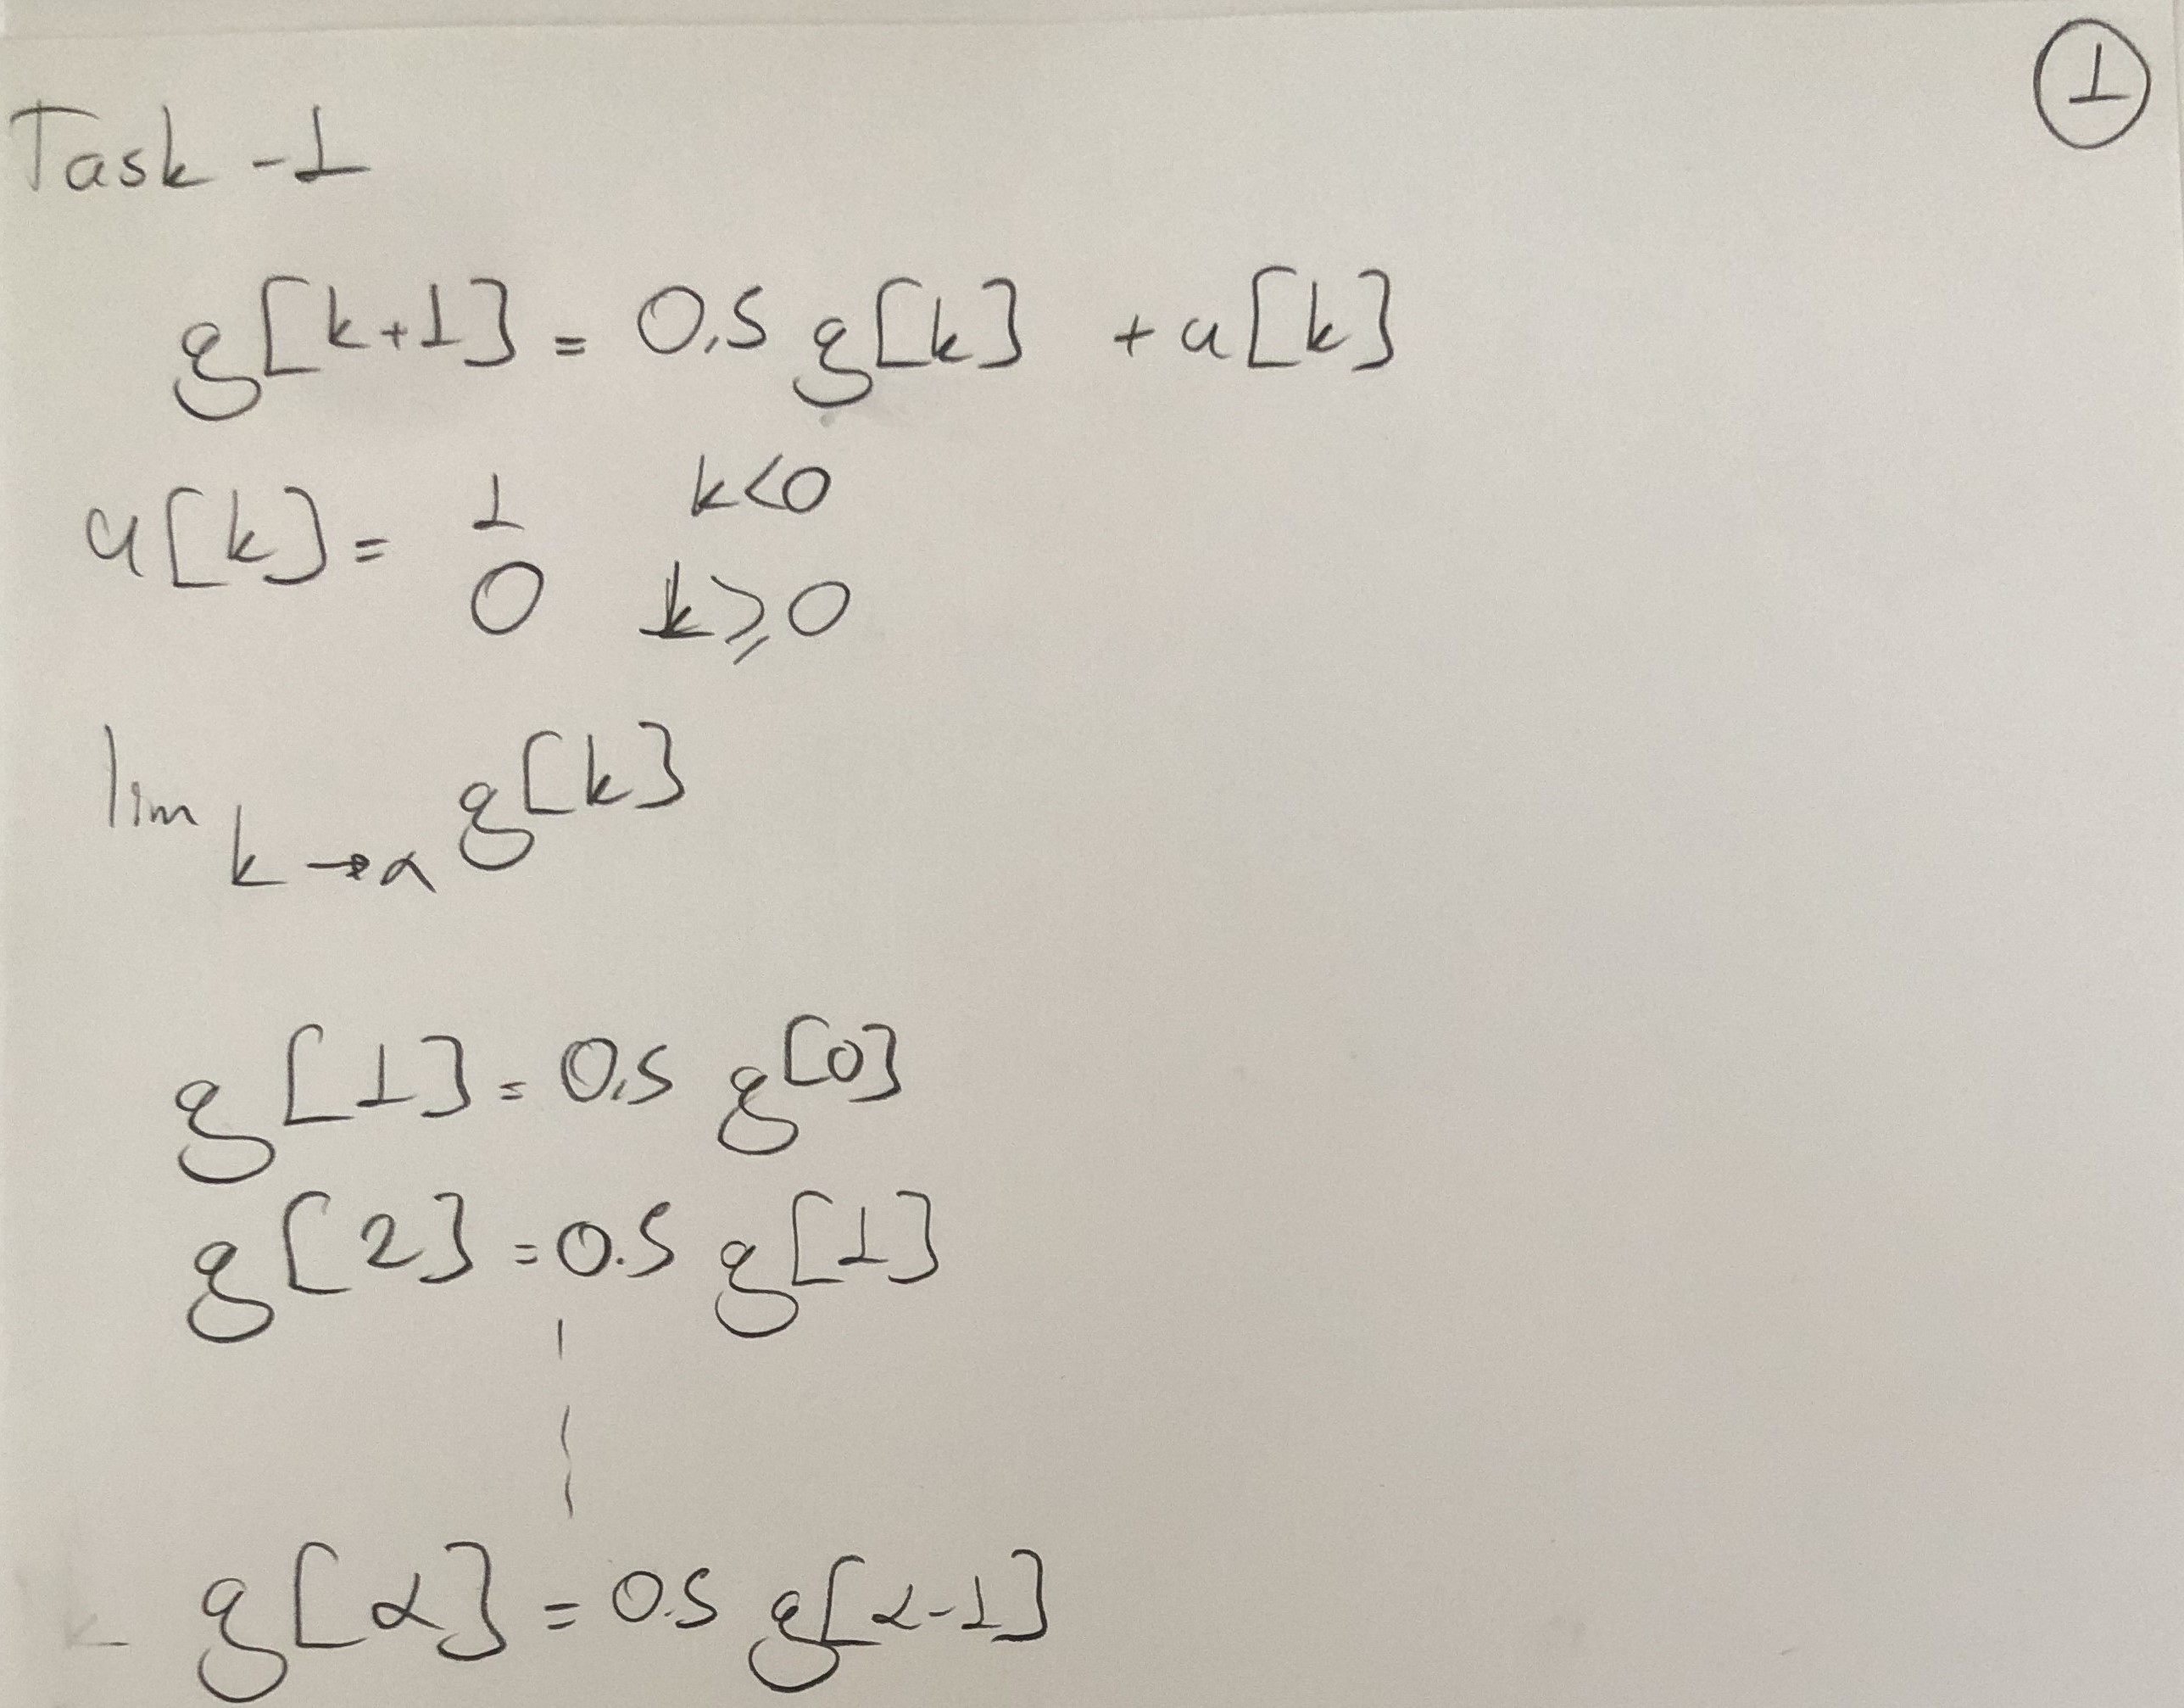 ①
Task -1
g[k+1] = 0.5 g[k] + u[k]
u[k] = 1 k<0
0 k≥0
lim k→α g[k]
g[1] = 0.5 g[0]
g[2] = 0.5 g[1]
g[α] = 0.5 g[α-1]